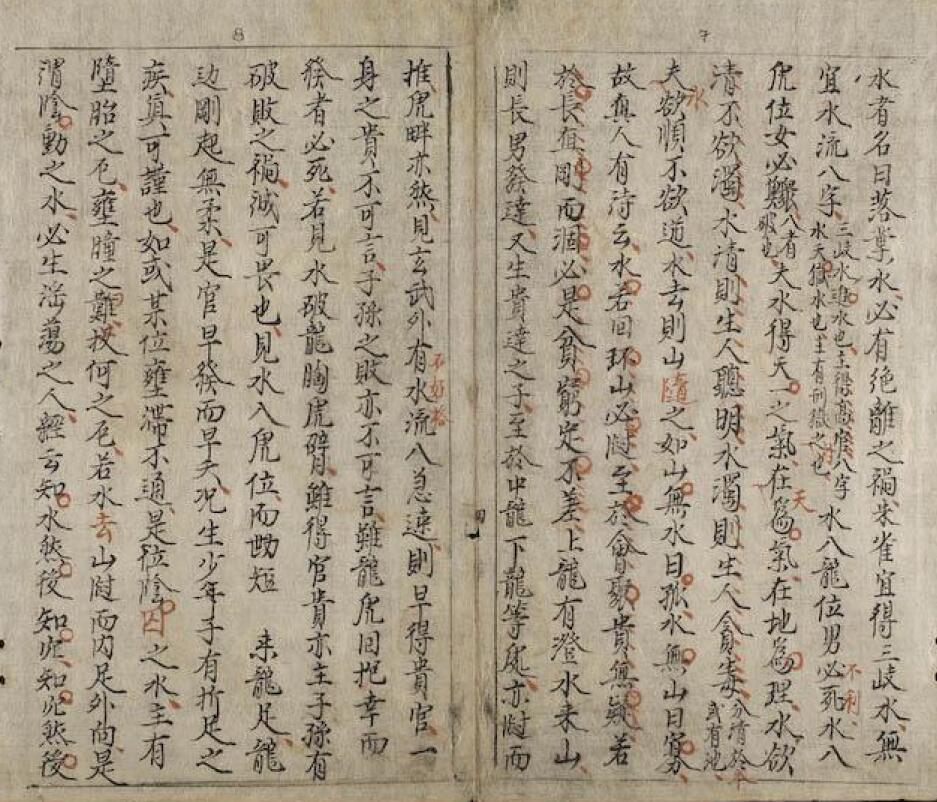 7
水者名曰落葉水必有绝離之禍朱雀宜得三歧水無
宜水流八字三歧水進水也主得 八字水天獄水也主有刑獄之 也水八龍位男必死水八
虎位女必 八者破也夫水得天一之氣在天為氣在地為理水欲
清不欲濁水清則生人聽明水濁則生人貪毒
夫水欲順不欲逆水去則山隨之如山無水曰孤水無山曰寡
故真人有詩云水若回环山必 至於會聚貴無疑若
於長有剛而涸必是貧窮定不差上龍有澄水来山
則長男發達又生貴達之子至於中龍下龍等處亦 而
8
推虎畔亦然見玄武外有水流八急速則早得貴官一
不可於
身之貴不可言子孫之敗亦不可言雖龍虎回抱幸而
發者必死若見水破龍胸虎臂雖得官貴亦主子孫有
破敗之禍誠可畏也見水八虎位而 短 来龍足龍
边剛起無柔是官早發而早夭况生少年子有折足之
疾真可謹也如或某位壅滞不通是位陰囚之水主有
墮胎之厄壅 之難投何之厄若水去山 而内足外向是
渭陰動之水必生滛蕩之人經云知水然後知此知此然後